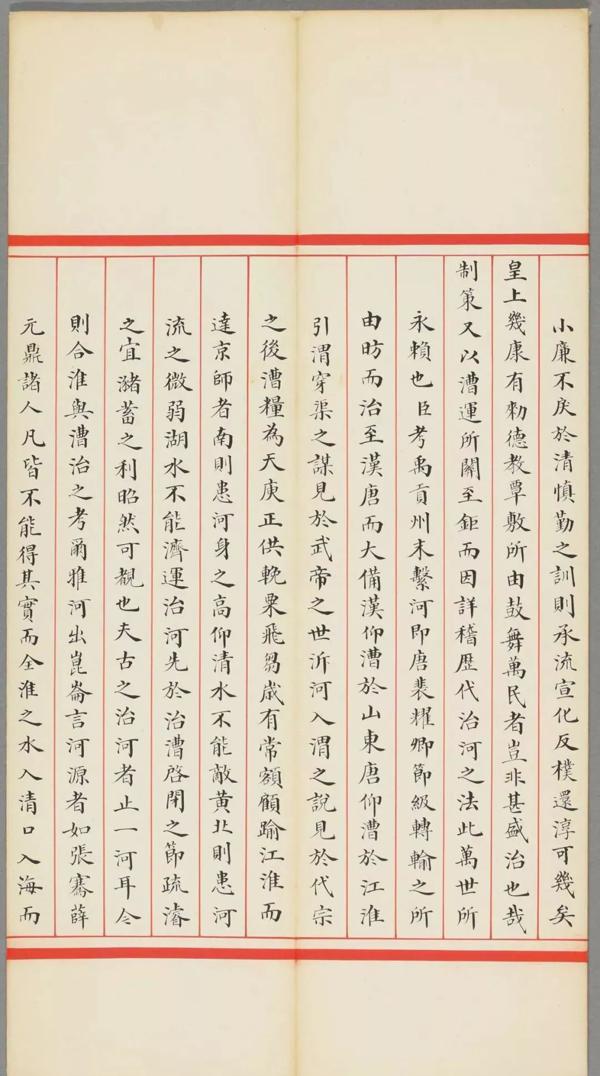 小廉不戾於清慎勤之訓則承流宣化反樸還淳可幾矣
皇上幾康有勑德教覃敷所由鼓舞萬民者豈非甚盛治也哉
制策又以漕運所關至鉅而因詳稽歷代治河之法此萬世所
永賴也臣考禹貢州末繫河即唐裴耀卿節級轉輸之所
由昉而治至漢唐而大備漢仰漕於山東唐仰漕於江淮
引渭穿渠之謀見於武帝之世泝河入渭之說見於代宗
之後漕糧為天庾正供輓粟飛芻歲有常額顧踰江淮而
達京師者南則患河身之高仰清水不能敵黃北則患河
流之微弱湖水不能濟運治河先於治漕啓閉之節疏濬
之宜瀦蓄之利昭然可觀也夫古之治河者止一河耳今
則合淮與漕治之考爾雅河出崑崙言河源者如張騫薛
元鼎諸人凡皆不能得其實而全淮之水入清口入海而